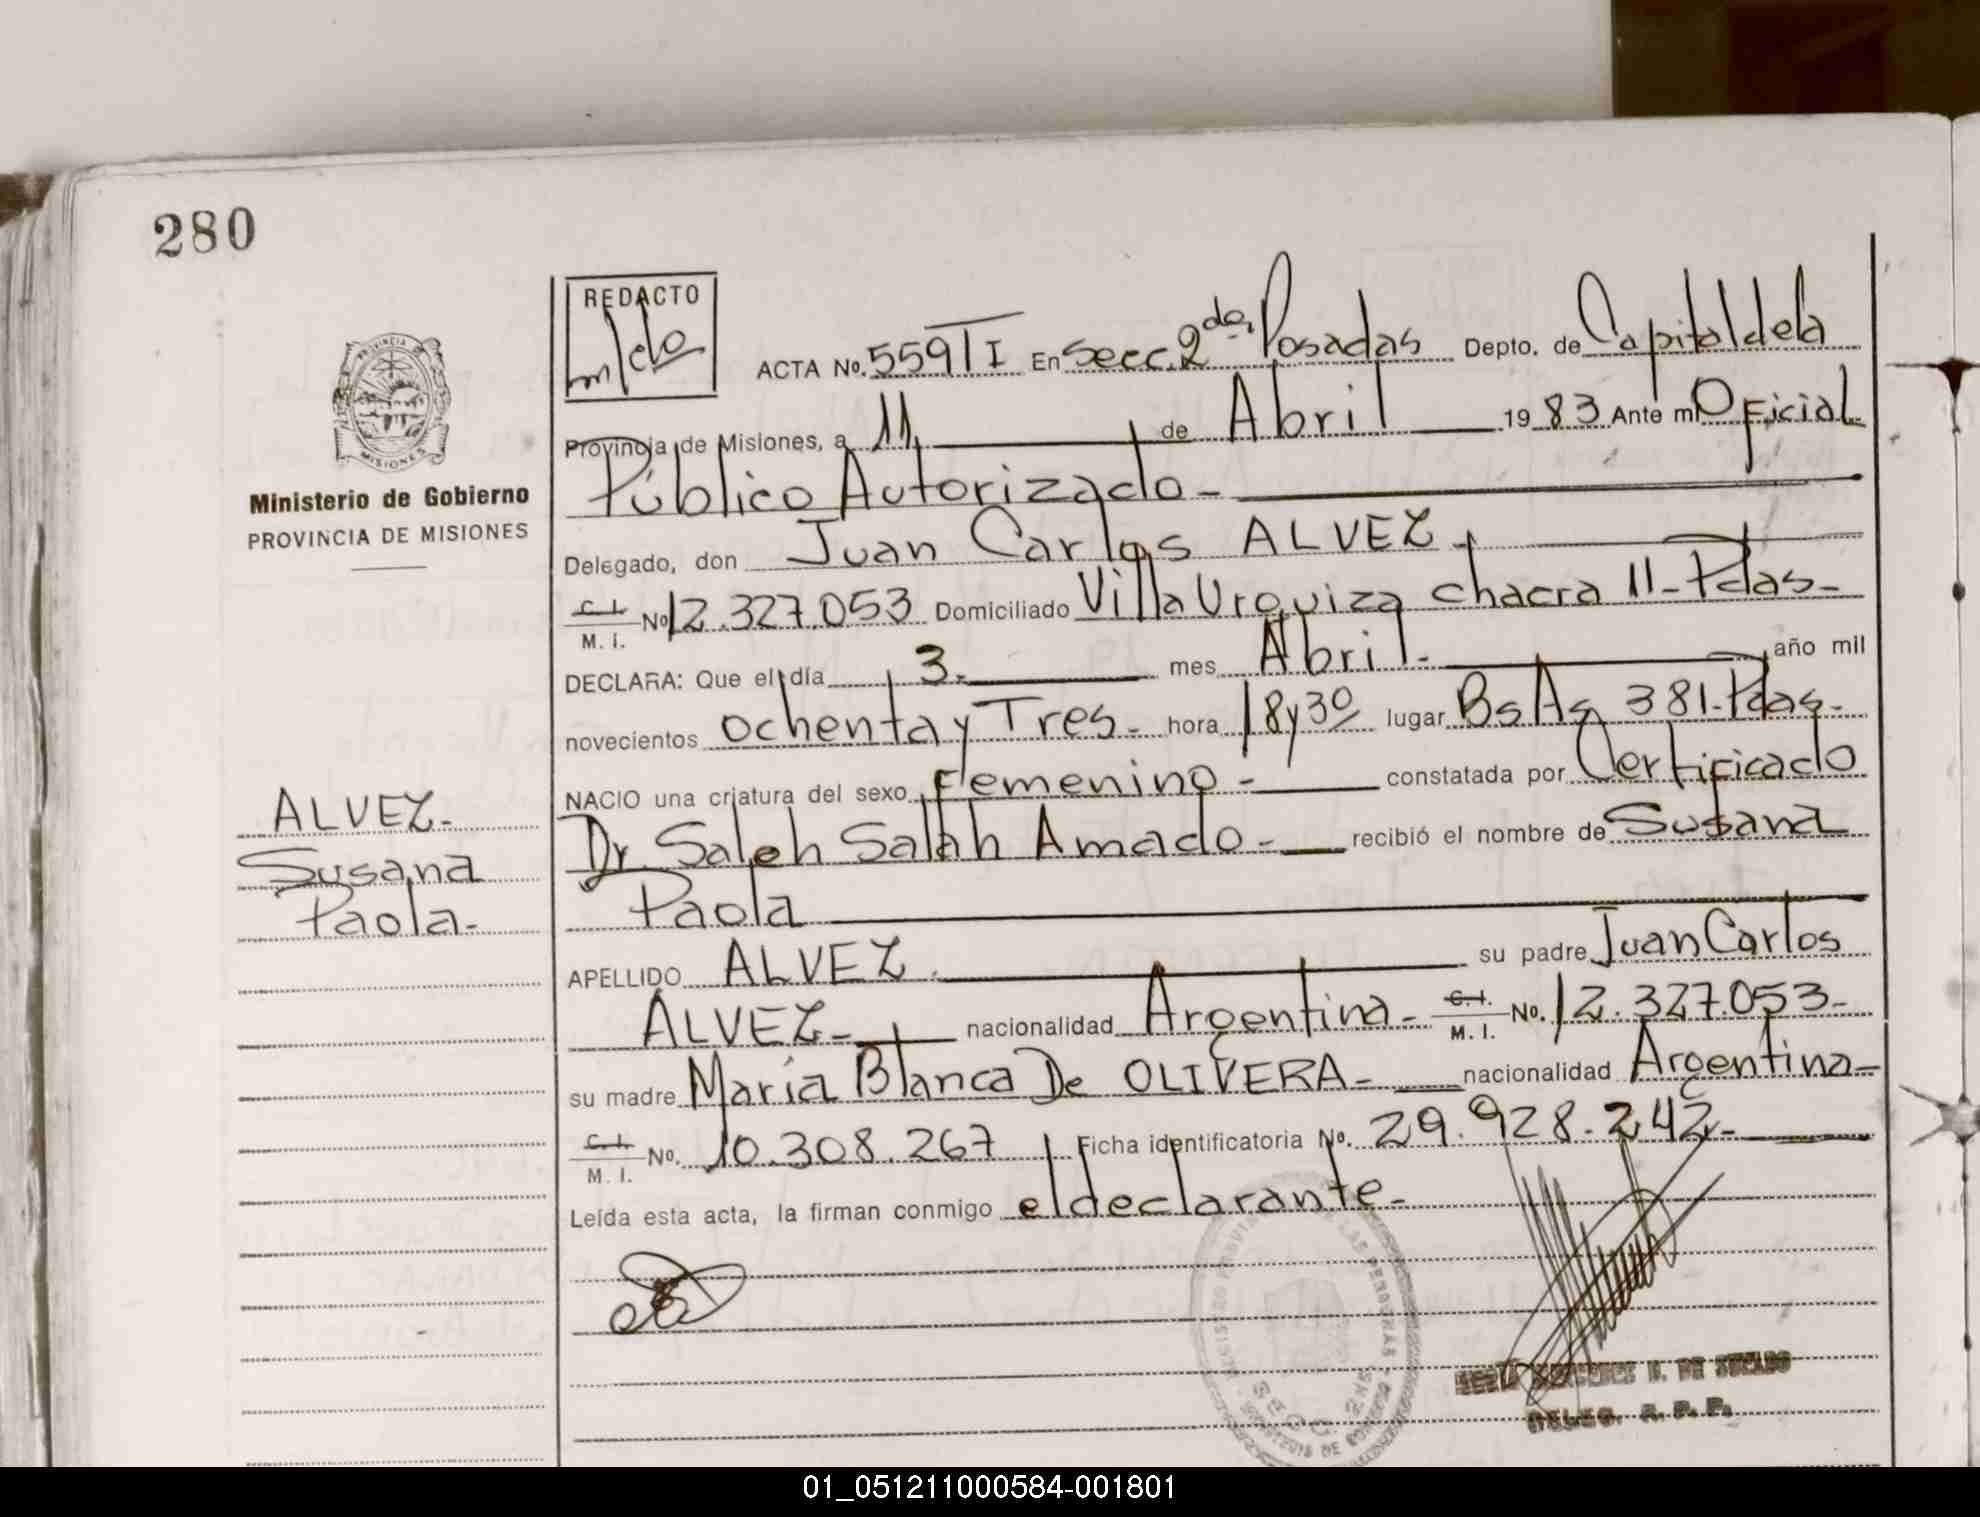 280
REDACTO
PROVINCIA DE
MISIONES
Ministerio de Gobierno
PROVINCIA DE MISIONES
ACTA No. 559/TI En Secc. 2da. Posadas Depto. de Capital de la
Provincia de Misiones, a 11, de Abril 1983 Ante mi Oficial
Público Autorizado -
Delegado, don Juan Carlos ALVEZ -
C. I. M. I. No 12.327.053 Domiciliado Villa Urquiza chacra 11 - Pdas -
DECLARA: Que el día 3. mes Abril. año mil
novecientos ochenta y Tres - hora 18 y 30 lugar Bs As 381 - Pdas -
NACIO una criatura del sexo Femenino - constatada por Certificado
Dr. Saleh Salah Amado - recibió el nombre de Susana
Paola
APELLIDO ALVEZ. su padre Juan Carlos
ALVEZ - nacionalidad Argentina - C. I. M. I. No. 12.327.053 -
su madre María Blanca De OLIVERA - nacionalidad Argentina -
C. I. M. I. No. 10.308.267 Ficha identificatoria No. 29.928.242 -
Leída esta acta, la firman conmigo el declarante -
ALVEZ -
Susana
Paola -
DE LAS PERSONAS
SECC.
DE SUELDO
DELEG. R. P. P.
01_051211000584-001801